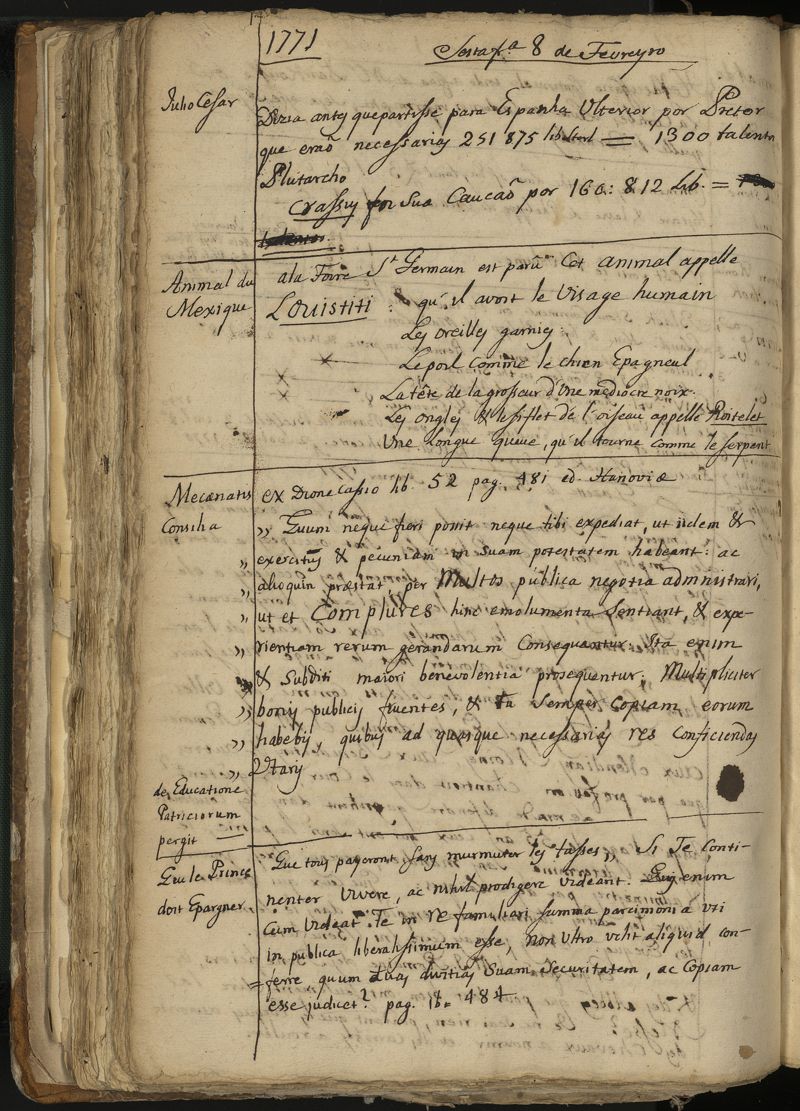 1771
Sesta fra 8 de Fevreyro
Julio Cesar
Dizia antes que partisse para Espanha Ulterior por Pretor
que eraõ necessarias 251 875 lib Sterl = 1300 talentos
Plutarcho
Crassus for sua Caucaõ por 160: 812 Lib. =
Animal du
Mexique
a la Foire St Germain est parû Cet animal appelle
Louistiti : qu'il avoit le Visage humain
Les oreilles garnies:
Le poil comme le chien Epagneul
La tête de la grosseur d'Une mediocre noix.
Les ongles & le siflet de l'oiseau appelle Roitelet
Une longue queue, qu'il tourne comme le serpent
Mecænatis
Consilia
ex Dione Cassio lib. 52 pag. 481 ed. Hanoviæ
„ Quum neque fieri possit neque tibi expediat, ut iidem &
„ exercitus & pecuniam in suam potestatem habeant: ac
„ alioquin præstat, per Multos publica negotia administrari,
„ ut et Complures hinc emolumenta Sentiant, & expe-
„ rientiam rerum gerandarum Consequantur. Ita enim
& Subditi maiori benevolentia prosequentur, Multipliciter
„ bonis publicis fruentes, & tu Semper Copiam eorum
„ habebis, quibus ad quasque necessarias res Conficiendas
„ Utaris
de Educatione
Patriciorum
pergit
Que le Prince
doit Epargner
Que tous payeront sans murmurer les tasses „ Si Te Conti-
nenter Vivere, ac nihil prodigere Videant. Quis enim
Cum Videat Te in re familiari summa parcimonia uti
in publica liberalissimum esse, non Ultro velit aliquid con-
= ferre, quum tuas divitias Suam Securitatem, ac Copiam
esse judicet? pag. Ib. 484